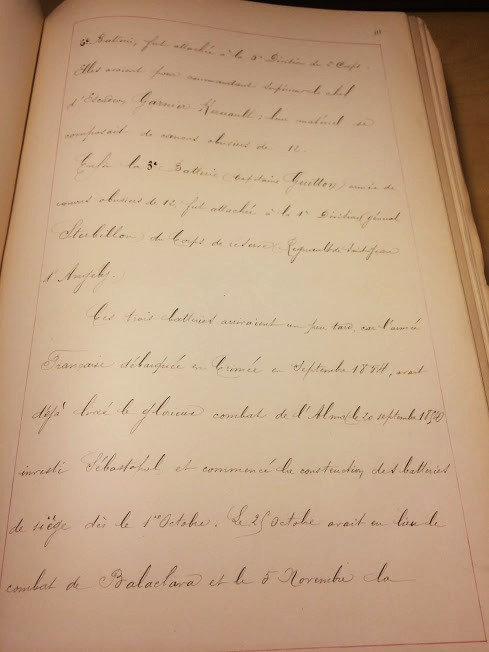 6e Batterie, fut attachée à la 3e Division du 2e Corps.
Elles avaient pour commandant supérieur le chef
d'Escadron Garnier Renault ; leur matériel se
composait de canons obusiers de 12.
Enfin la 3e Batterie (capitaine Guitton) armée de
canons obusiers de 12, fut attachée à la 1e Division (général
du Corps de réserve Regnault de Saint-Jean
d'Angely.
Ces trois batteries arrivaient un peu tard, car l'armée
Française débarquée en Crimée en Septembre 1854, avait
déjà livré le glorieux combat de l'Alma (le 20 septembre 1854)
investi Sébastopol, et commencé la construction des batteries
de siège dès le 1er Octobre. Le 25 Octobre avait eu lieu le
combat de Balaclava et le 5 Novembre la